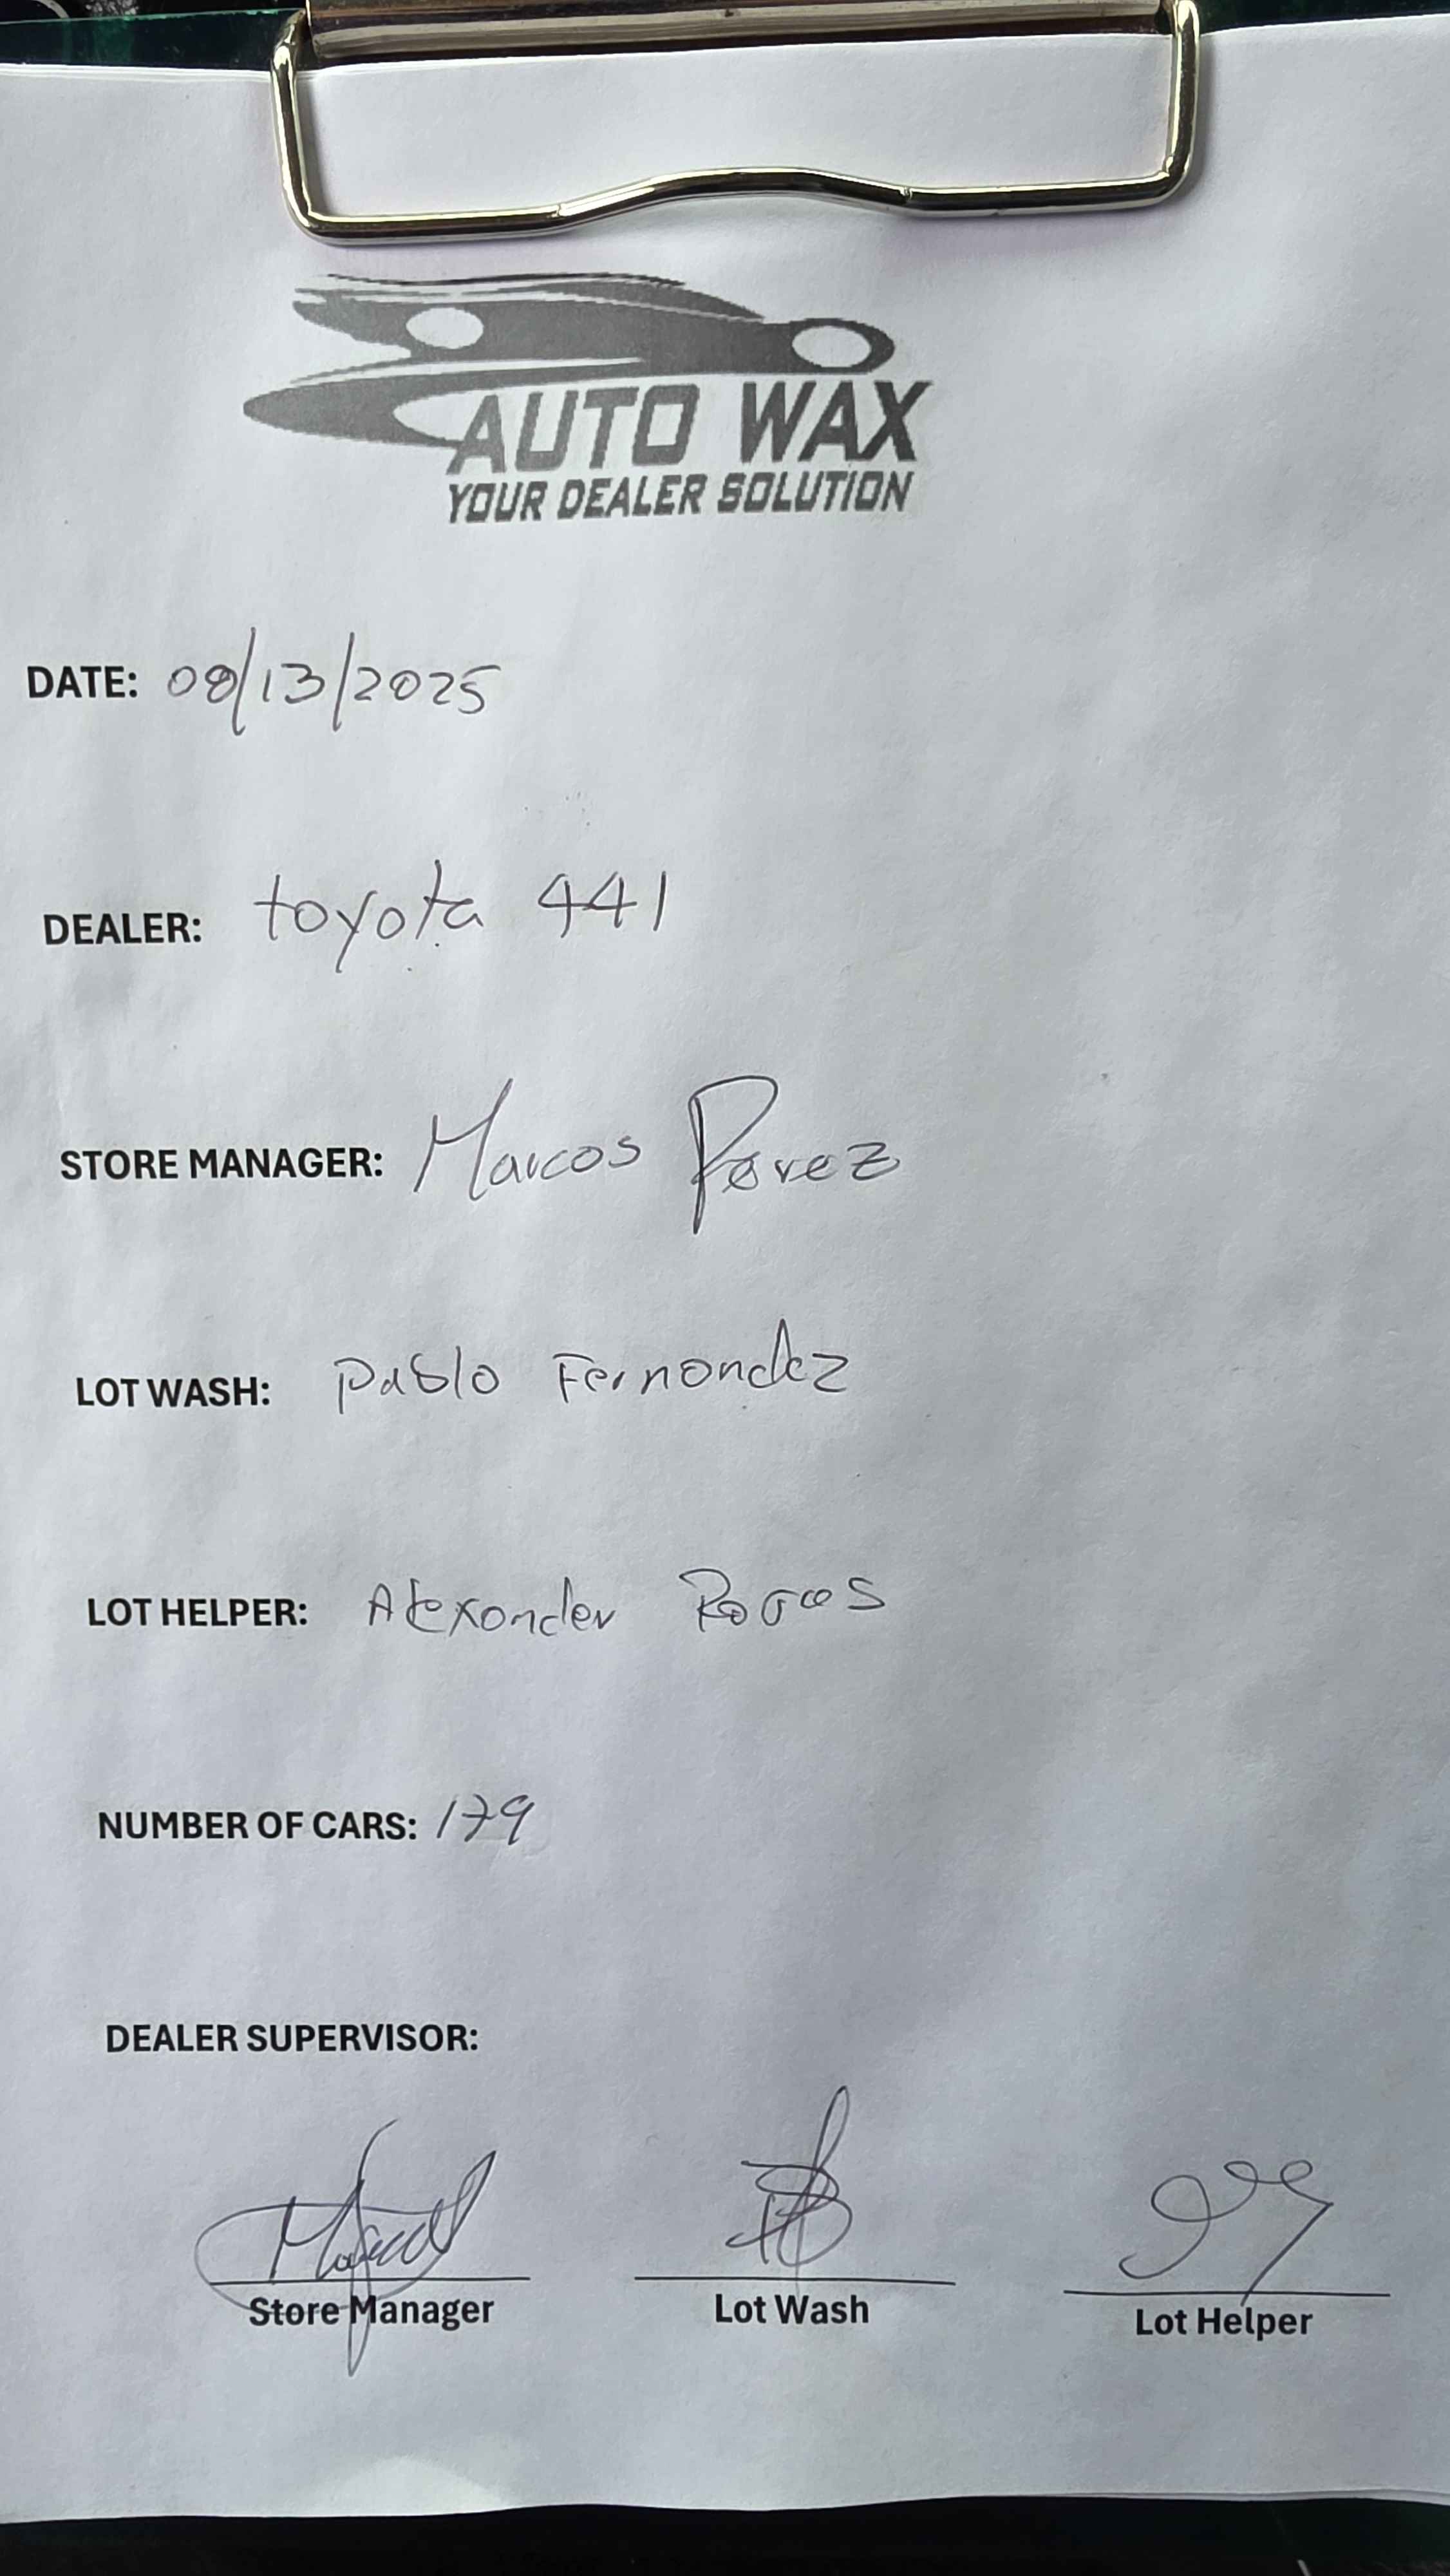 AUTO WAX
YOUR DEALER SOLUTION
DATE: 08/13/2025
DEALER: toyota 441
STORE MANAGER: Marcos Perez
LOT WASH: Pablo Fernondez
LOT HELPER: Alexonder
NUMBER OF CARS: 179
DEALER SUPERVISOR:
Store Manager Lot Wash Lot Helper